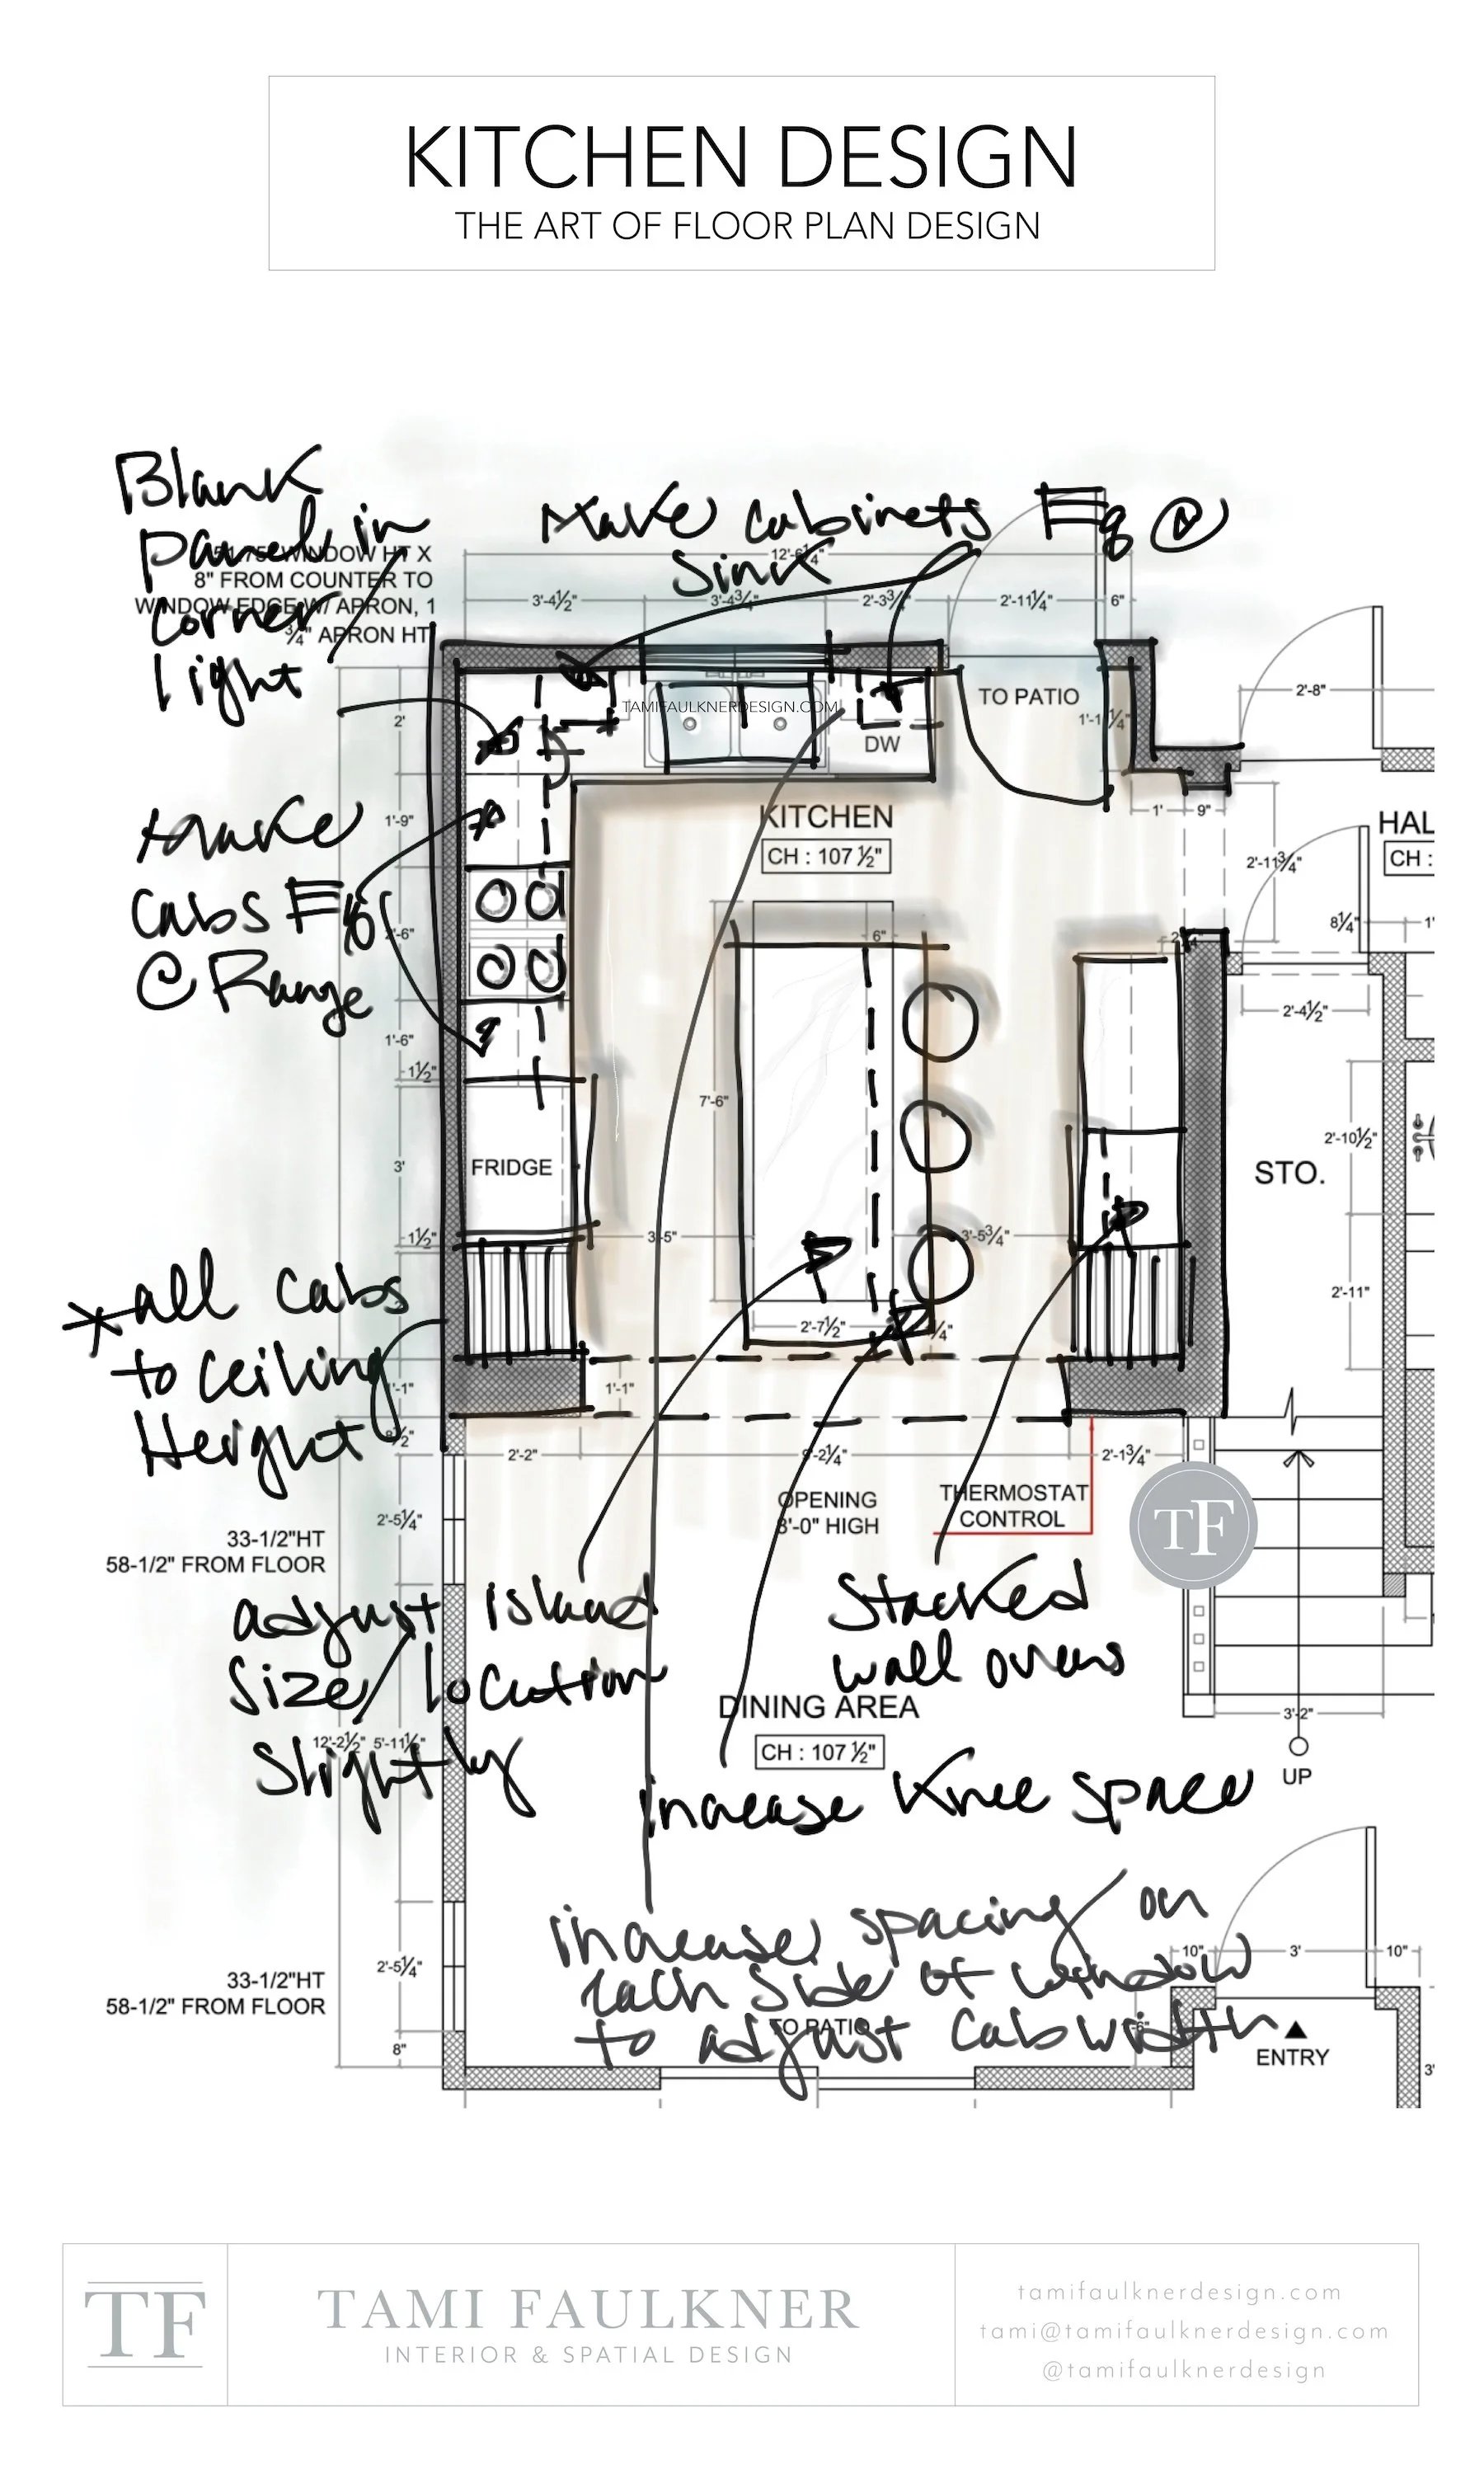 KITCHEN DESIGN
THE ART OF FLOOR PLAN DESIGN
Blank
panel in
corner
light
WINDOW HT X
8" FROM COUNTER TO
WINDOW EDGE W/ APRON, 1
¾" APRON HT
Make cabinets Eq @
Sink
12'-6¼"
3'-4½"
3'-4¾"
2'-3¾"
2'-11¼"
6"
2'-8"
TO PATIO
TAMIFAULKNERDESIGN.COM
DW
2'
KITCHEN
CH : 107 ½"
1'
9"
HAL
CH :
2'-11¾"
Make
cabs Eq
@ Range
1'-9"
8¼"
1'
6"
2'-4½"
1'-6"
1½"
7'-6"
2'-10½"
FRIDGE
3'
STO.
1½"
3'-5"
3'-5¾"
2'-11"
*all cabs
to ceiling
Height
2'-7½"
1'-1"
2'-2"
9'-2¼"
2'-1¾"
OPENING
8'-0" HIGH
THERMOSTAT
CONTROL
TF
2'-5¼"
33-1/2"HT
58-1/2" FROM FLOOR
adjust island
size/location
slightly
Stacked
wall ovens
DINING AREA
CH : 107 ½"
3'-2"
UP
12'-2½"
5'-11½"
increase Knee space
increase spacing on
each side of window
to adjust cab width
10"
3'
10"
2'-5¼"
33-1/2"HT
58-1/2" FROM FLOOR
8"
TO PATIO
ENTRY
3'
TF
TAMI FAULKNER
INTERIOR & SPATIAL DESIGN
tamifaulknerdesign.com
tami@tamifaulknerdesign.com
@tamifaulknerdesign